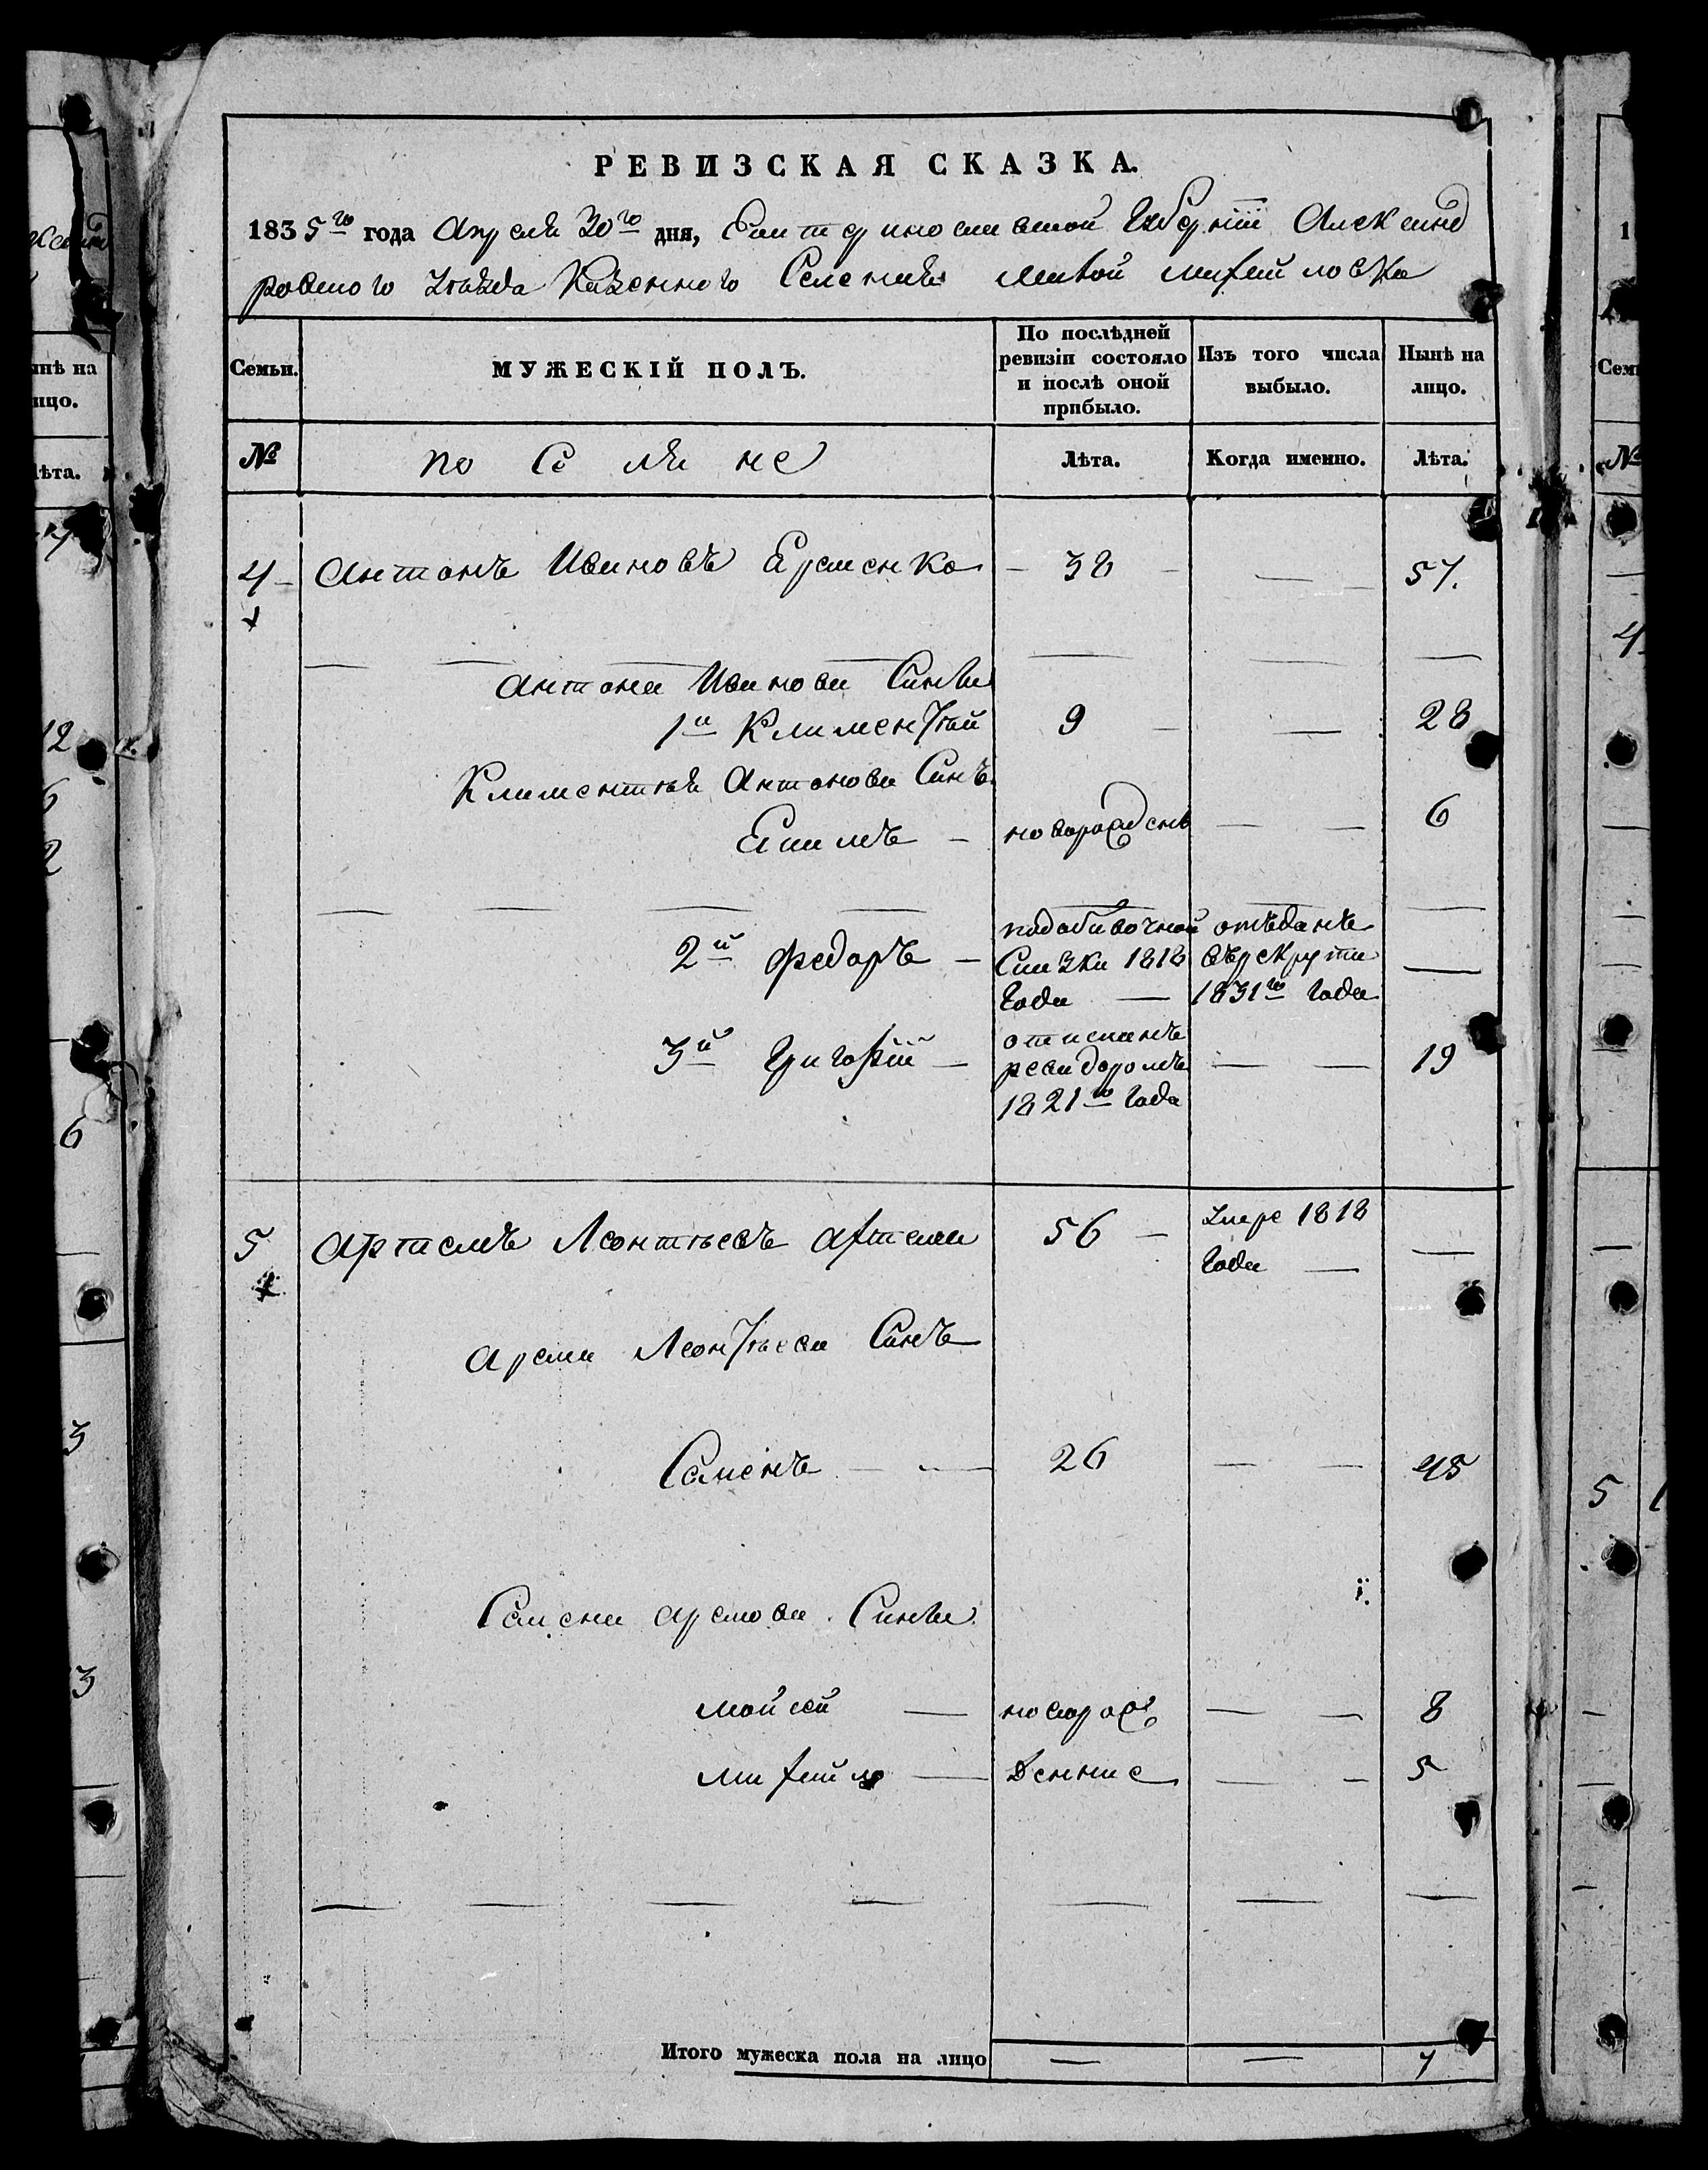 РЕВИЗСКАЯ СКАЗКА.
1835го года Апреля 30го дня, Екатеринославской Губерніи Александ
ровского уезда Казенного Селения Малой Михайловки
Семьи.
МУЖЕСКІЙ ПОЛЪ.
По послѣдней ревизіи состояло и послѣ оной прибыло.
Изъ того числа выбыло.
Нынѣ на лицо.
№
поселяне
Лѣта.
Когда именно.
Лѣта.
4 Антонъ Ивановъ Еременко 38 — 57.
Антона Иванова Сыны
1й Климентій 9 — 28
Климентия Антонова Сынъ
Екимъ — новорожденъ — — 6
2й Федоръ — по добавочной Сказки 1818 Года — отъданъ въ рекруты 1831го Года —
3й Григорій — отисканъ ревидоромъ 1821го Года — — 19
5 Артемъ Леонтьевъ 56 — умре 1818 Года — —
Леонтьева Сынъ
Семенъ — — 26 — — 45
Семена Сыны
Мойсей — новорож — — 8
Михайло — денние — — 5
Итого мужеска пола на лицо — — 7
нѣ на
ицо.
ѣта.
12
6
2
6
3
3
1
Сем
№
4
5